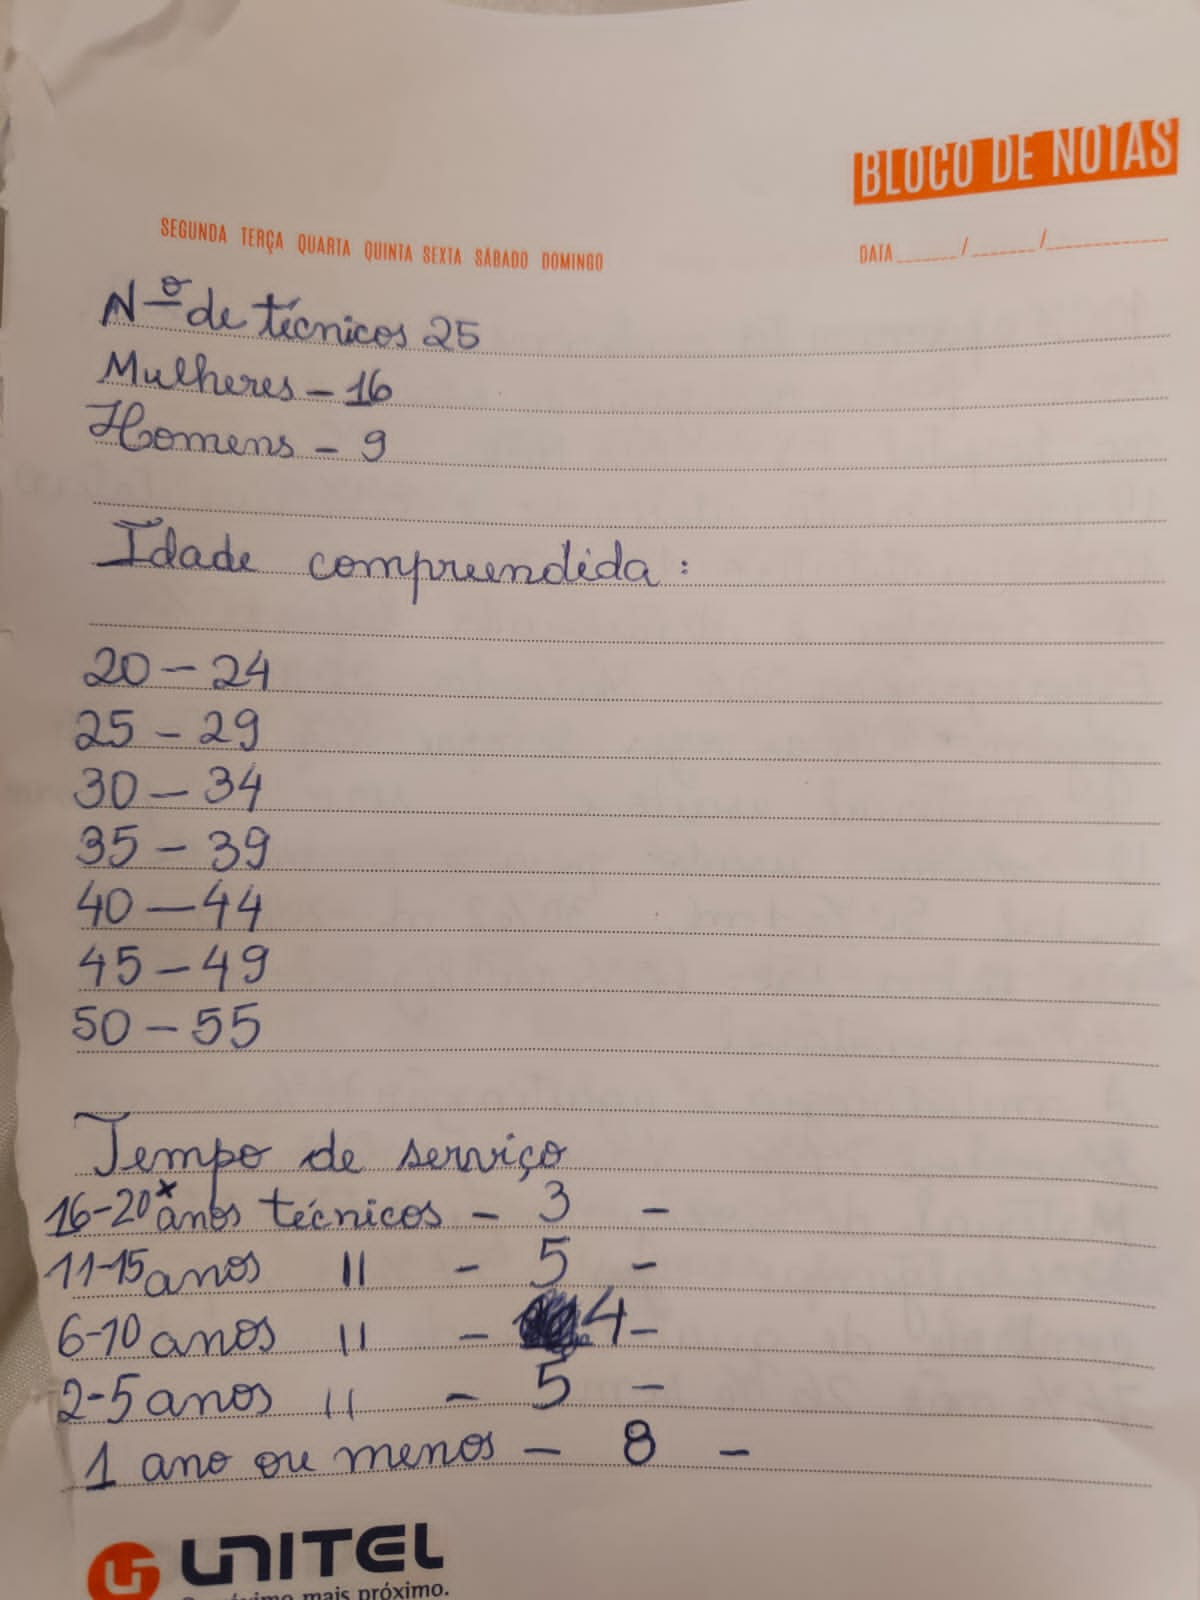 BLOCO DE NOTAS
SEGUNDA TERÇA QUARTA QUINTA SEXTA SÁBADO DOMINGO
DATA ____/____/________
Nº de técnicos 25
Mulheres - 16
Homens - 9
Idade compreendida :
20 - 24
25 - 29
30 - 34
35 - 39
40 - 44
45 - 49
50 - 55
Tempo de serviço
16-20 x anos técnicos - 3 -
11-15 anos 11 - 5 -
6-10 anos 11 - 4 -
2-5 anos 11 - 5 -
1 ano ou menos - 8 -
UNITEL
mais próximo.